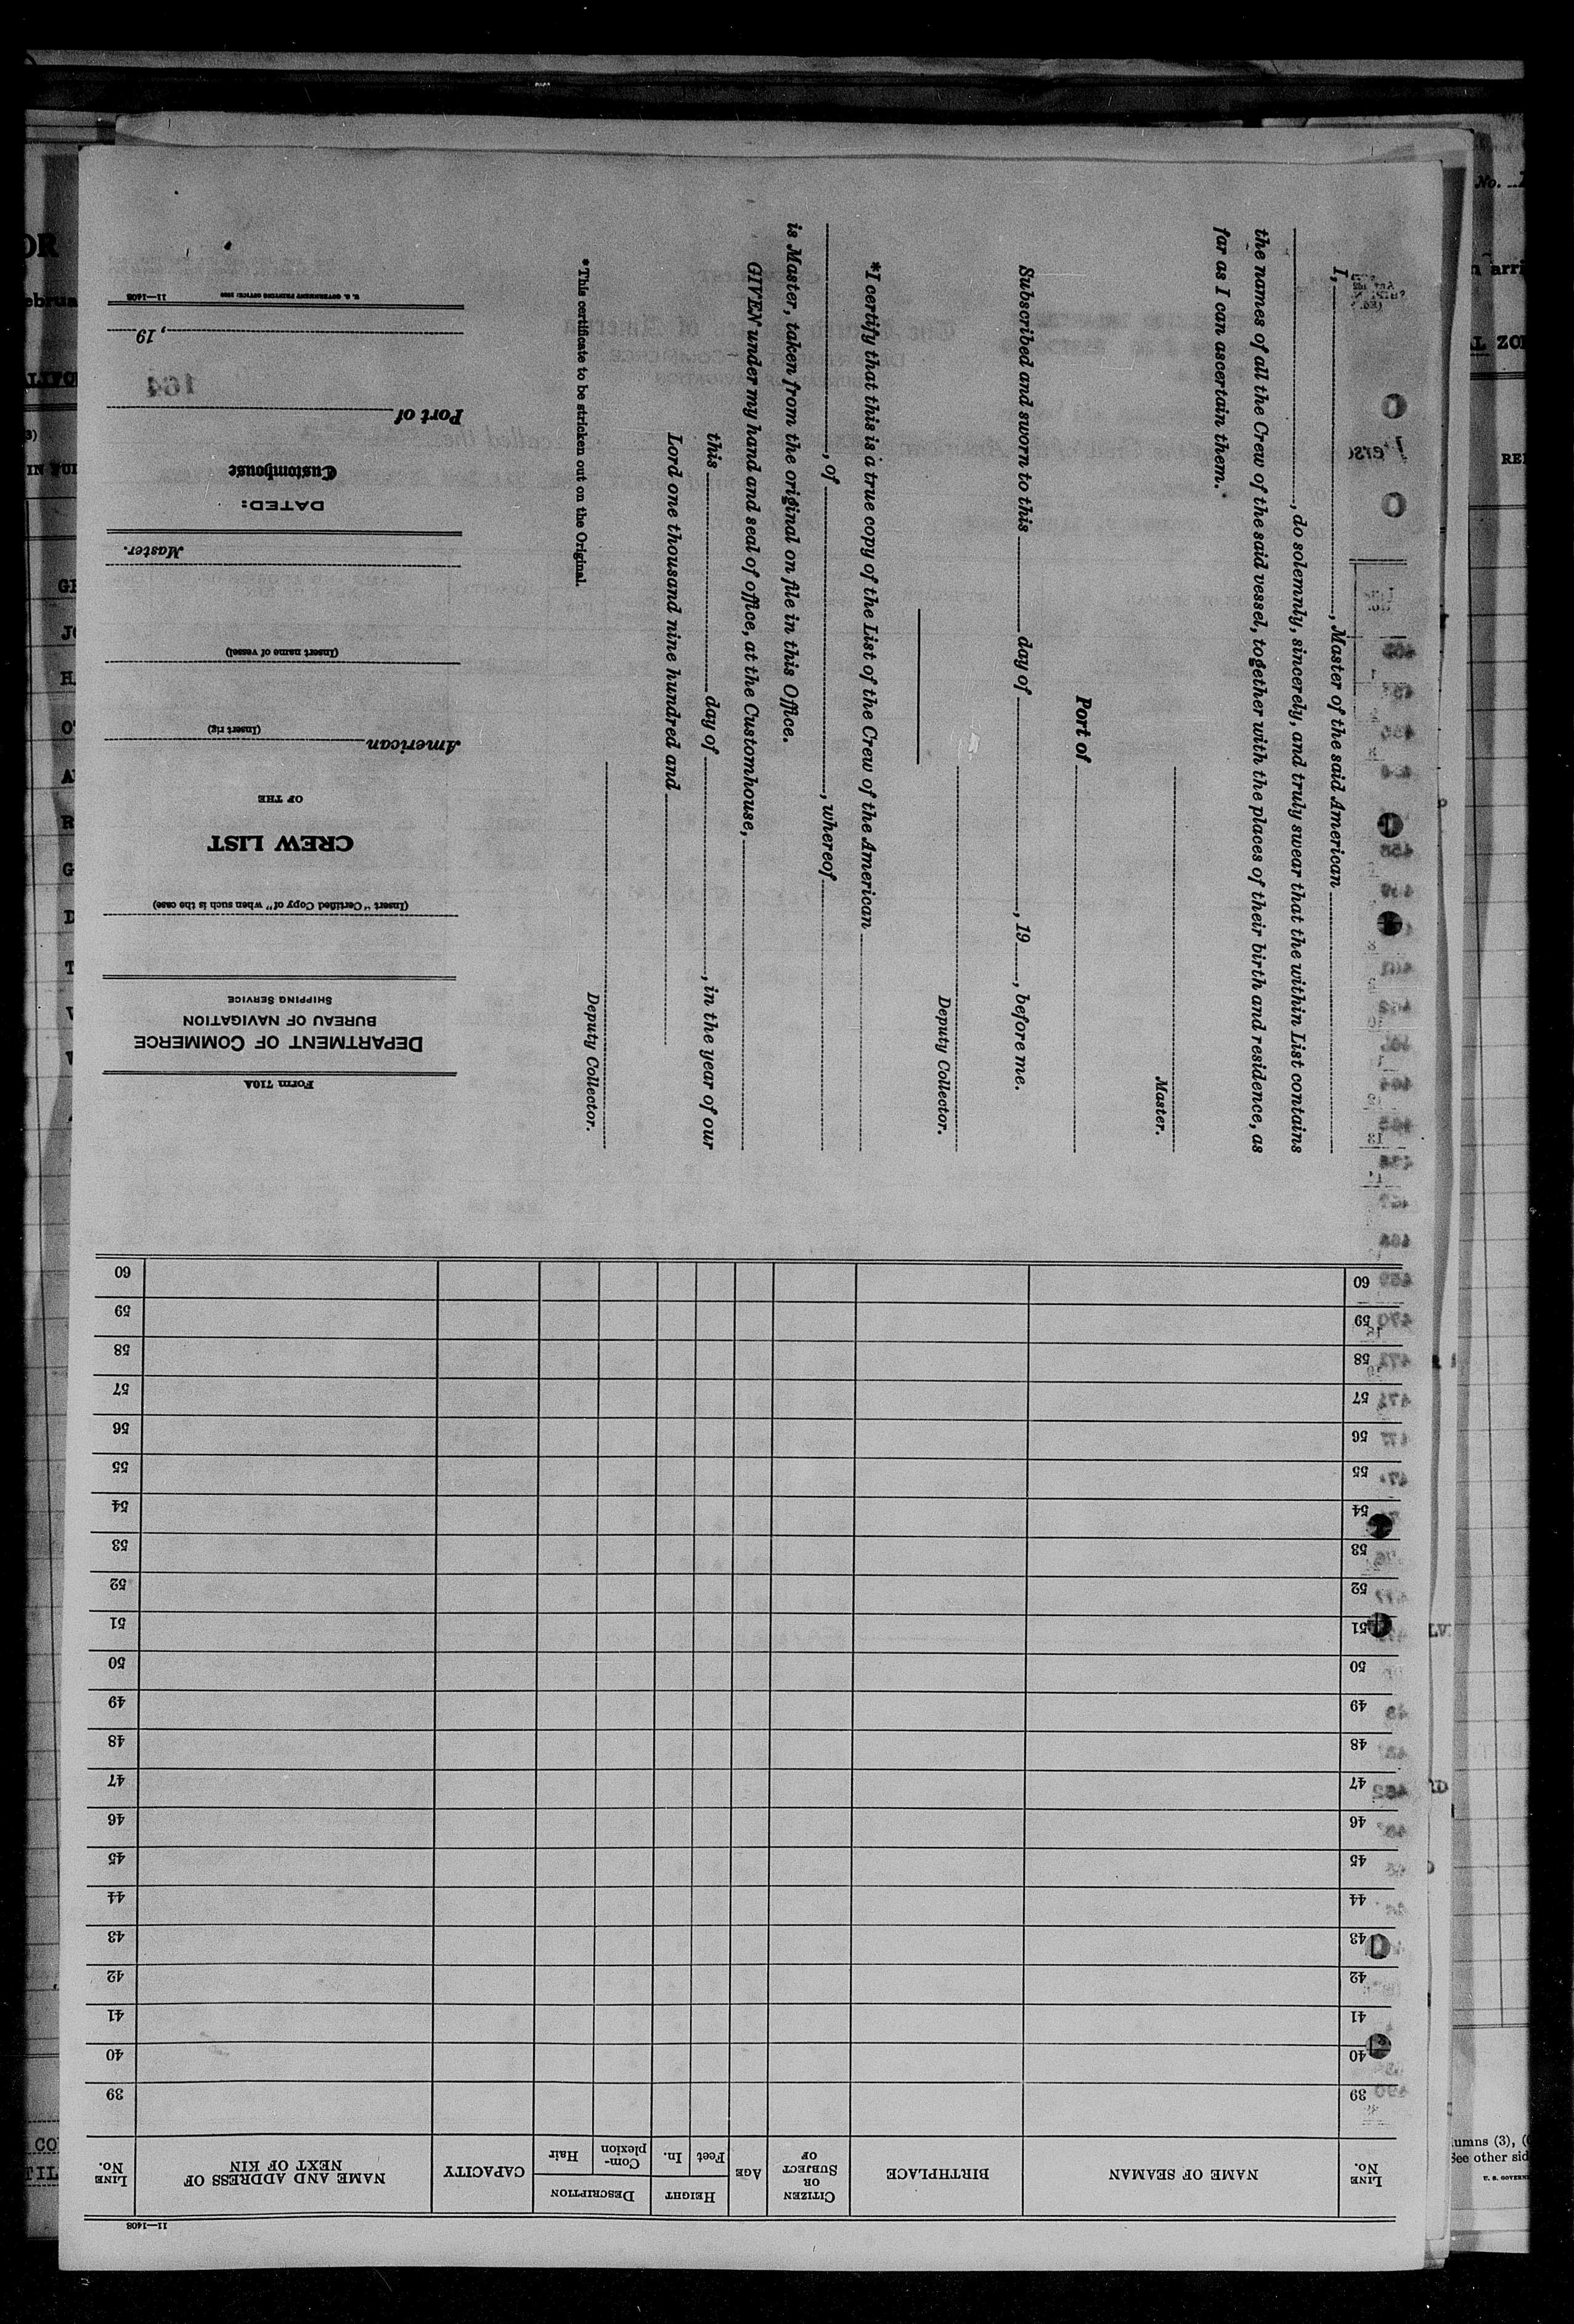 11—1408
LINE No.
NAME OF SEAMAN
BIRTHPLACE
CITIZEN OR SUBJECT OF
AGE
HEIGHT
Feet
In.
DESCRIPTION
Com-plexion
Hair
CAPACITY
NAME AND ADDRESS OF NEXT OF KIN
LINE No.
39 39
40 40
41 41
42 42
43 43
44 44
45 45
46 46
47 47
48 48
49 49
50 50
51 51
52 52
53 53
54 54
55 55
56 56
57 57
58 58
59 59
60 60
I, , Master of the said American
, do solemnly, sincerely, and truly swear that the within List contains
the names of all the Crew of the said vessel, together with the places of their birth and residence, as
far as I can ascertain them.
Master.
Port of
Subscribed and sworn to this day of , 19 , before me.
Deputy Collector.
*I certify that this is a true copy of the List of the Crew of the American
, of , whereof
is Master, taken from the original on file in this Office.
GIVEN under my hand and seal of office, at the Customhouse,
this day of , in the year of our
Lord one thousand nine hundred and
Deputy Collector.
*This certificate to be stricken out on the Original.
Form 710A
DEPARTMENT OF COMMERCE
BUREAU OF NAVIGATION
SHIPPING SERVICE
(Insert "Certified Copy of" when such is the case)
CREW LIST
OF THE
American
(Insert rig)
(Insert name of vessel)
Master.
DATED:
Customhouse
Port of
164
, 19
U. S. GOVERNMENT PRINTING OFFICE
11—1408